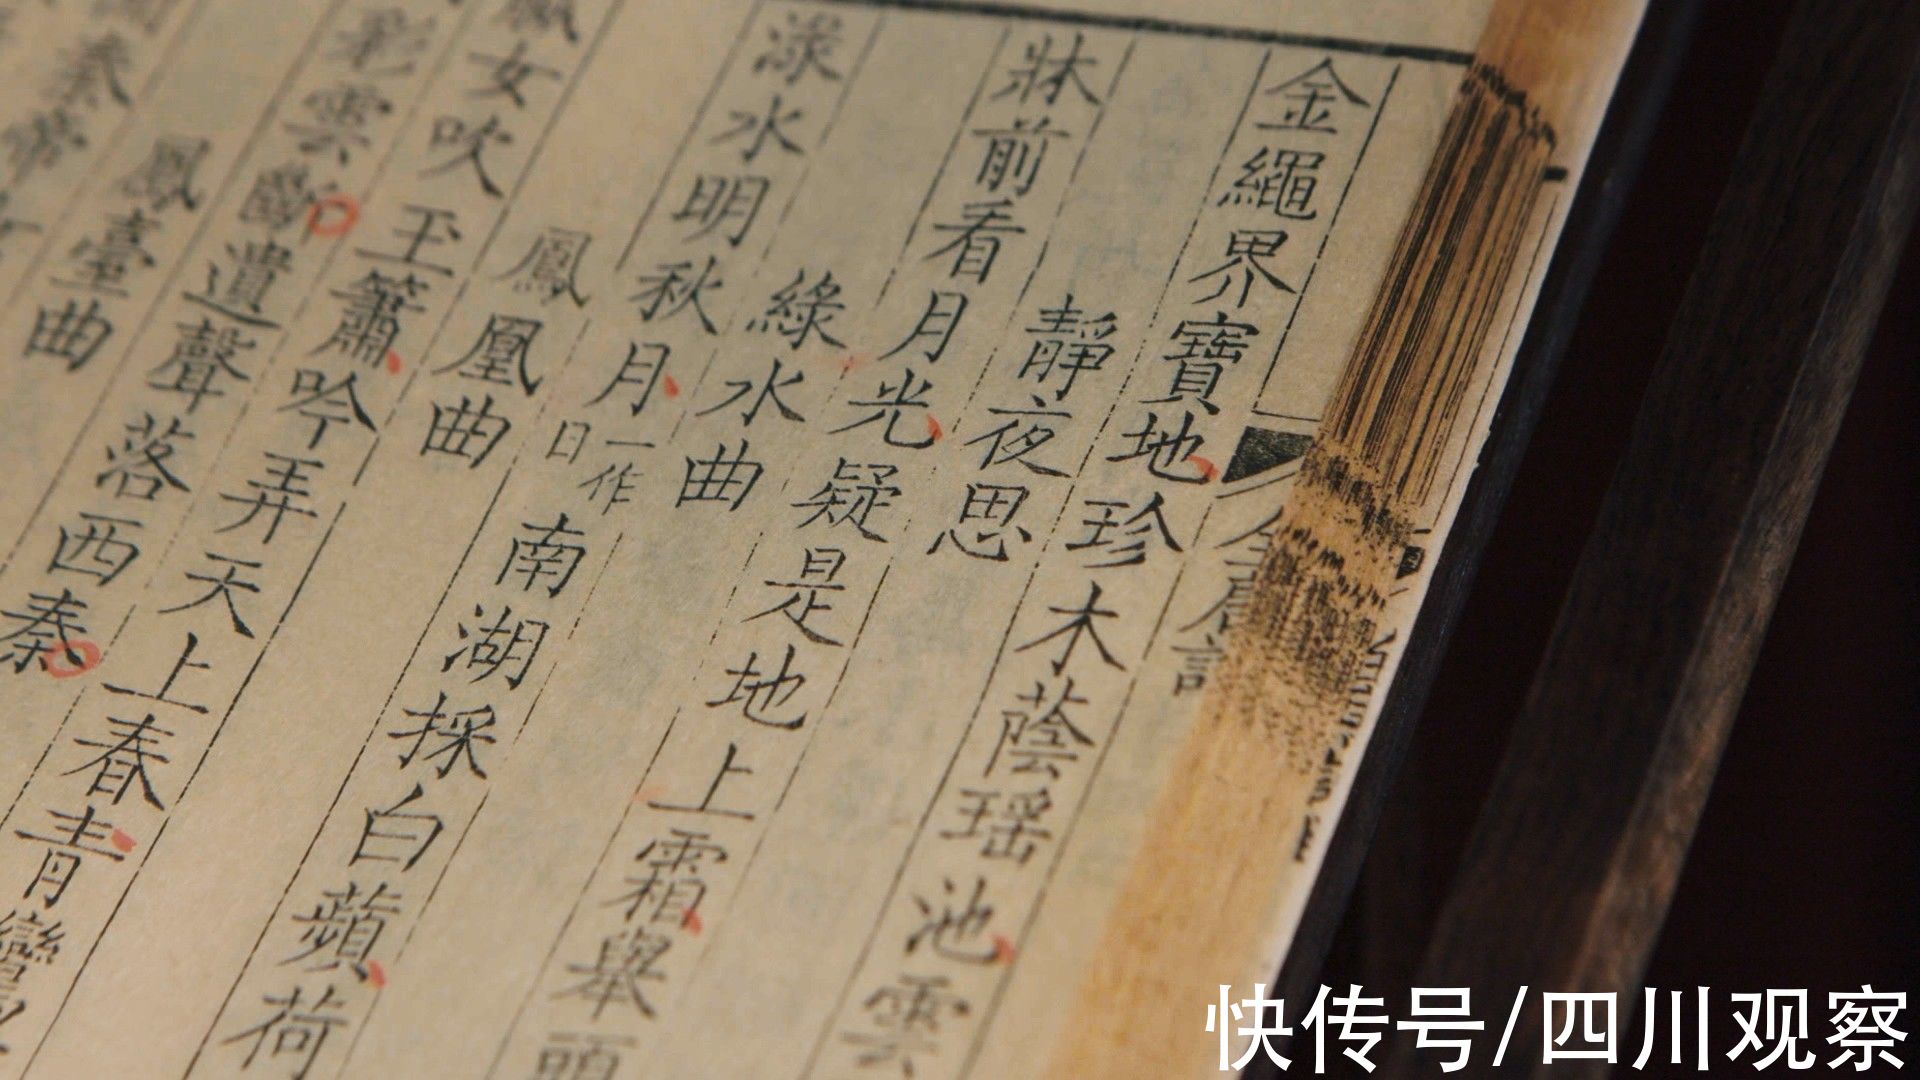 金繩界寶地珍木蔭瑶池雲
靜夜思
牀前看月光疑是地上霜舉頭
綠水曲
淥水明秋月一作日南湖採白蘋荷
鳳凰曲
女吹玉簫吟弄天上春青鸞
彩雲斷遺聲落西秦
鳳臺曲
秦帝
快传号/四川观察